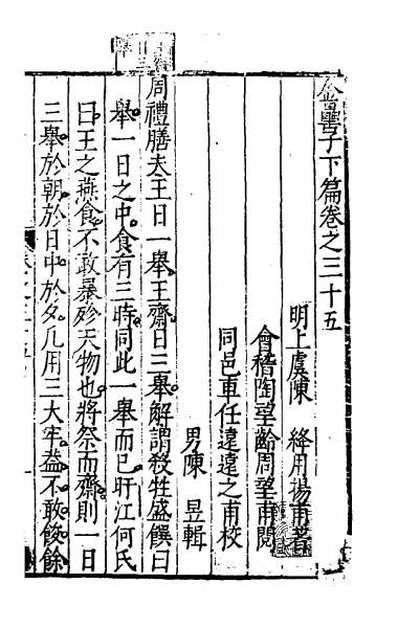 金罍子下篇卷之三十五
明上虞陳　絳用揚甫著
會稽陶望齡周望甫閱
同邑車任遠遠之甫校
男陳　昱輯
周禮膳夫王日一舉王齋日三舉解謂殺牲盛饌曰
舉一日之中食有三時同此一舉而已盱江何氏
曰王之燕食不敢暴殄天物也將祭而齋則一日
三舉於朝於日中於夕凡用三大牢葢不敢餕餘